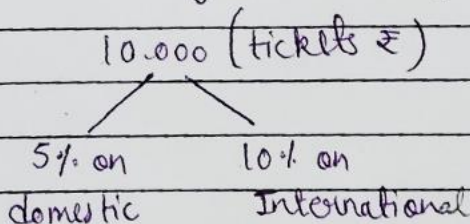 10.000 (tickets ₹)
5% on 10% on
domestic International